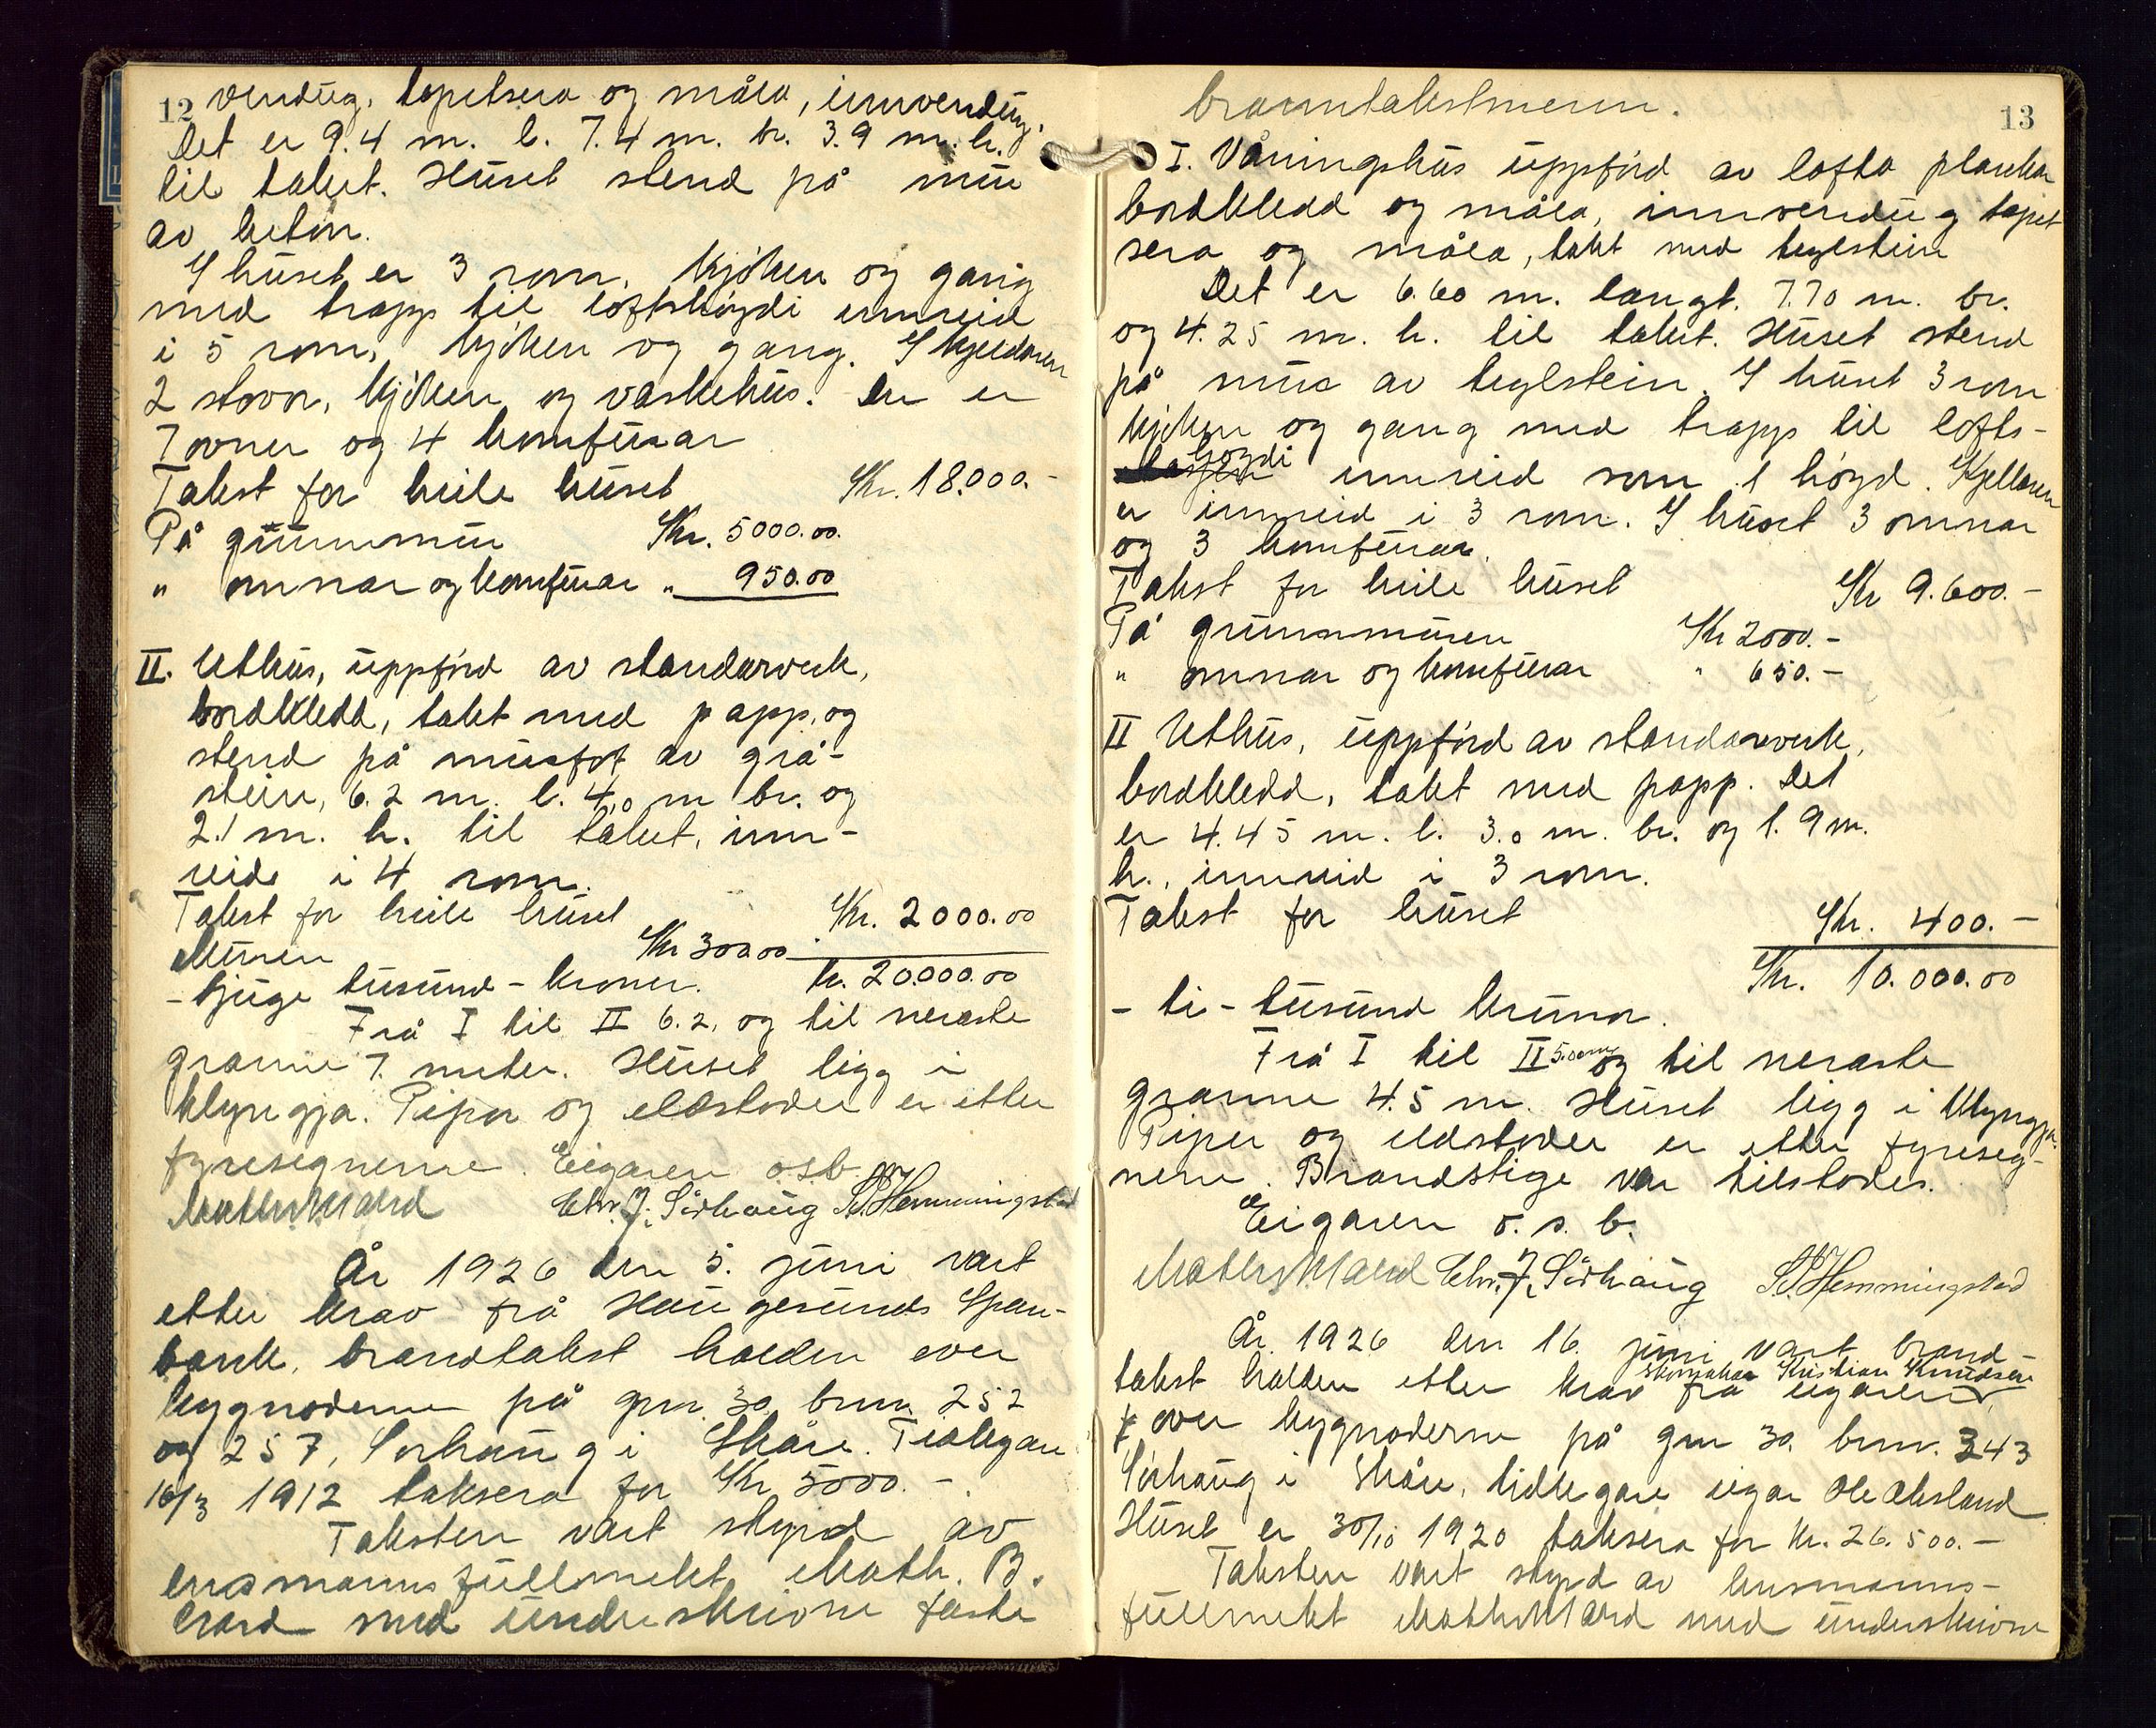 12 vendug, tapetsera og måla, innvendug.
Det er 9.4 m. l. 7.4 m. br. 3.9 m. h.
til taket. Huset stend på mur
av beton.
I huset er 3 rom, kjøken og gang
med trapp til loftshøgdi innreid
i 5 rom, kjøken og gang. I kjeldaren
2 stovor, kjøken og vaskehus. Der er
7 ovner og 4 komfurar
Takst for heile huset Kr. 18.000.-
På grunnmur Kr. 5000.00.
" omnar og komfurar " 950.00
II. Uthus, uppførd av standarverk,
bordkledd, takt med papp, og
stend på murfot av grå-
stein, 6.2 m. l. 4,0 m br. og
2.1 m. h. til taket, inn-
reid i 4 rom.
Takst for heile huset Kr. 2000.00
Muren Kr 300.00
- tjuge tusund - kroner. kr. 20.000.00
Frå I til II 6.2, og til neraste
granne 7. meter. Huset ligg i
klyngja. Pipor og eldstoder er etter
fyresegnerne. Eigaren o.s.b.
Chr. J. Sørhaug S. Hemmingstad
År 1926 den 5. juni vart
etter krav frå Haugesunds Spare-
bank, brandtakst halden over
bygnoderne på gnr. 30 bnr. 252
og 257, Sørhaug i Skåre. Tidlegare
16/3 1912 taksera for Kr 5000.-.
Taksten vart styrd av
lensmannsfullmekt. Math. B.
Aard med underskrivne faste
branntakstmenn. 13
I. Våningshus uppførd av lofta plankar
bordkledd og måla, innvendug tapet
sera og måla, takt med teglstein
Det er 6.60 m. langt. 7.70 m. br.
og 4.25 m. h. til taket. Huset stend
på mur av teglstein. I huset 3 rom
kjøken og gang med trapp til lofts-
høgdi innreid som 1 høgd. Kjellaren
er innreid i 3 rom. I huset 3 omnar
og 3 komfurar.
Takst for heile huset Kr 9.600.-
På grunnmuren Kr 2000.-
" omnar og komfurar " 650.-
II Uthus, uppførd av standarverk,
bordkledd, takt med papp. Det
er 4.45 m. l. 3.0 m. br. og 1.9 m.
h., innreid i 3 rom.
Takst for huset Kr. 400.-
Kr. 10.000.00
- ti - tusund krunor.
Frå I til II 5.00 m og til neraste
granne 4.5 m. Huset ligg i klyngja.
Piper og eldstoder er etter fyreseg-
nern. Brandstige var tilstodes.
Eigaren o. s. b.
Chr. J. Sørhaug S. Hemmingstad
År 1926 den 16. juni vart brand-
takst halden etter krav frå eigaren Skomakar Kristian Knudsen
over bygnoderne på gnr 30. bnr. 343
Sørhaug i Skåre, tidlegare eigar Ole Aksland.
Huset er 30/10 1920 taksera for Kr. 26.500.-
Taksten vart styrd av lensmanns-
fullmekt med underskrivne